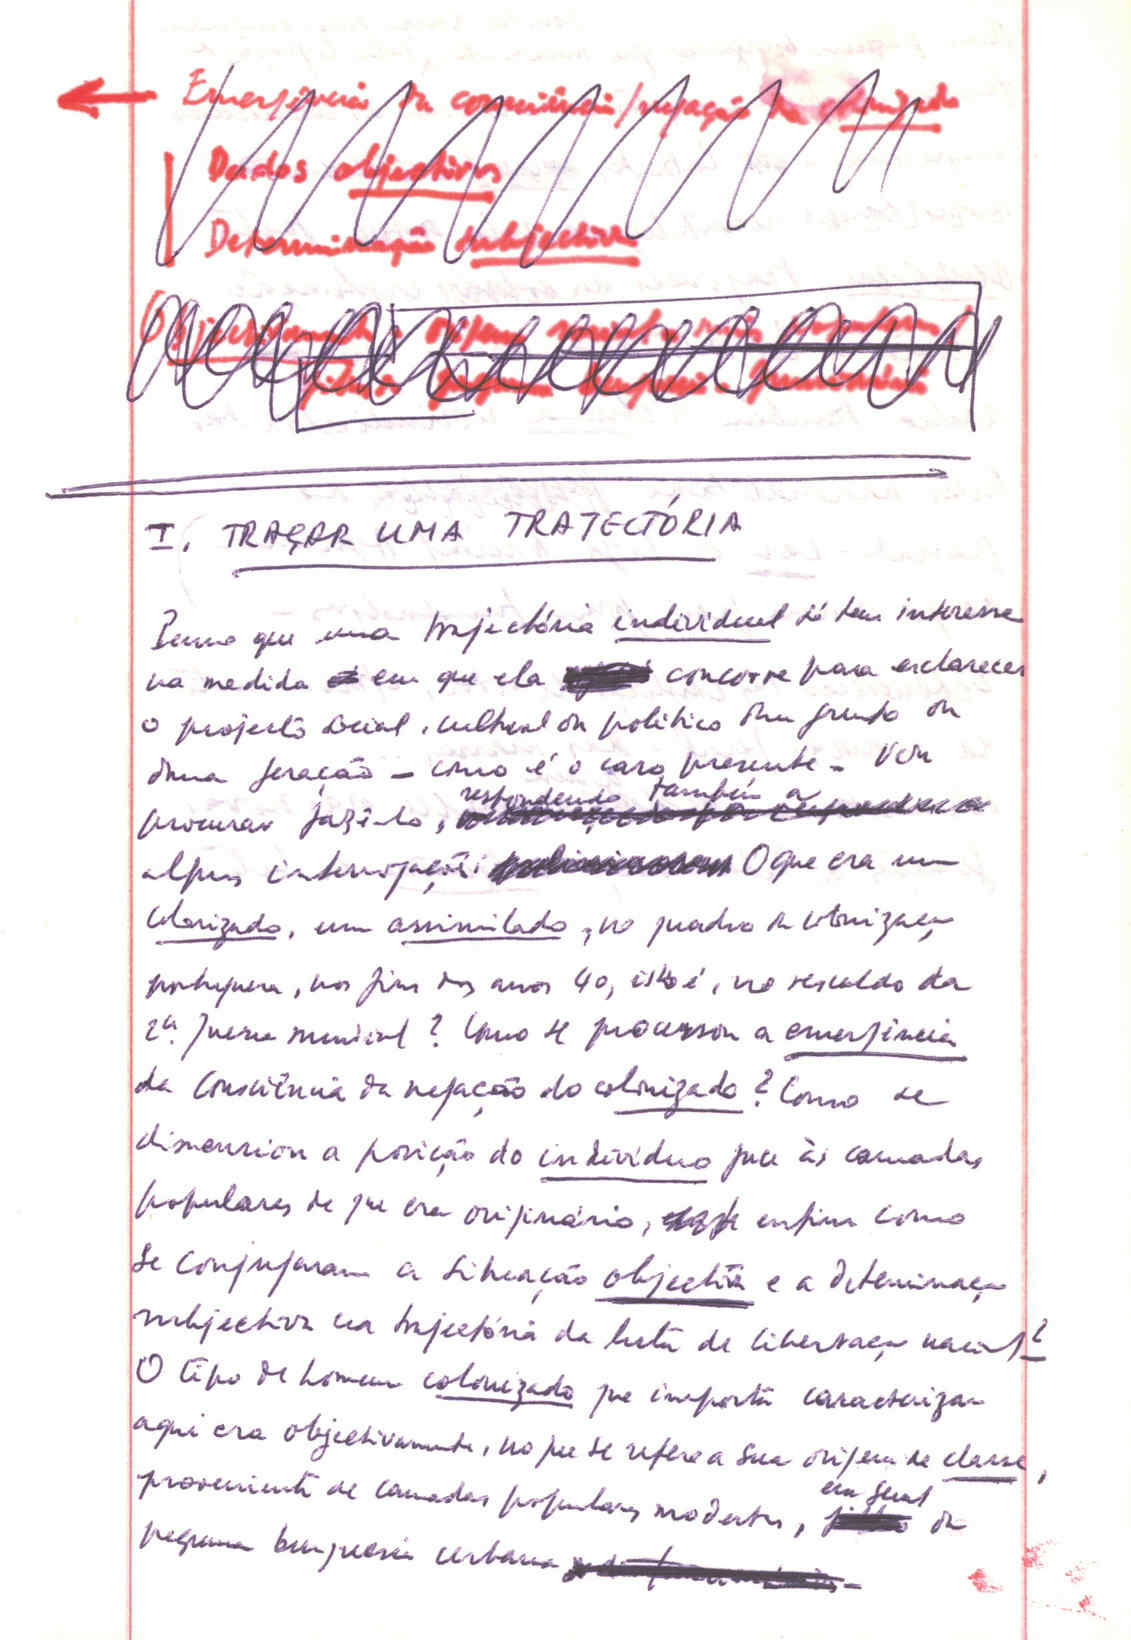 Emergência da consciência/negação do colonizado
Dados objectivos
Determinação subjectiva
origem social
I. TRAÇAR UMA TRAJECTÓRIA
Penso que uma trajectória individual só tem interesse
na medida em que ela concorre para esclarecer
o projecto social, cultural ou político dum grupo ou
duma geração – como é o caso presente – Vou
respondendo também a
procurar fazê-lo,
algumas interrogações: O que era um
colonizado, um assimilado, no quadro da colonização
portuguesa, nos fins dos anos 40, isto é, no rescaldo da
2ª. guerra mundial? Como se processou a emergência
da consciência da negação do colonizado? Como se
dimensiona a posição do indivíduo face às camadas
populares de que era originário, enfim como
se conjugaram a situação objectiva e a determinação
subjectiva na trajectória da luta de libertação nacional?
O tipo de homem colonizado que importa caracterizar
aqui era objectivamente, no que se refere a sua origem de classe,
em geral
proveniente de camadas populares modestas, da
pequena burguesia urbana